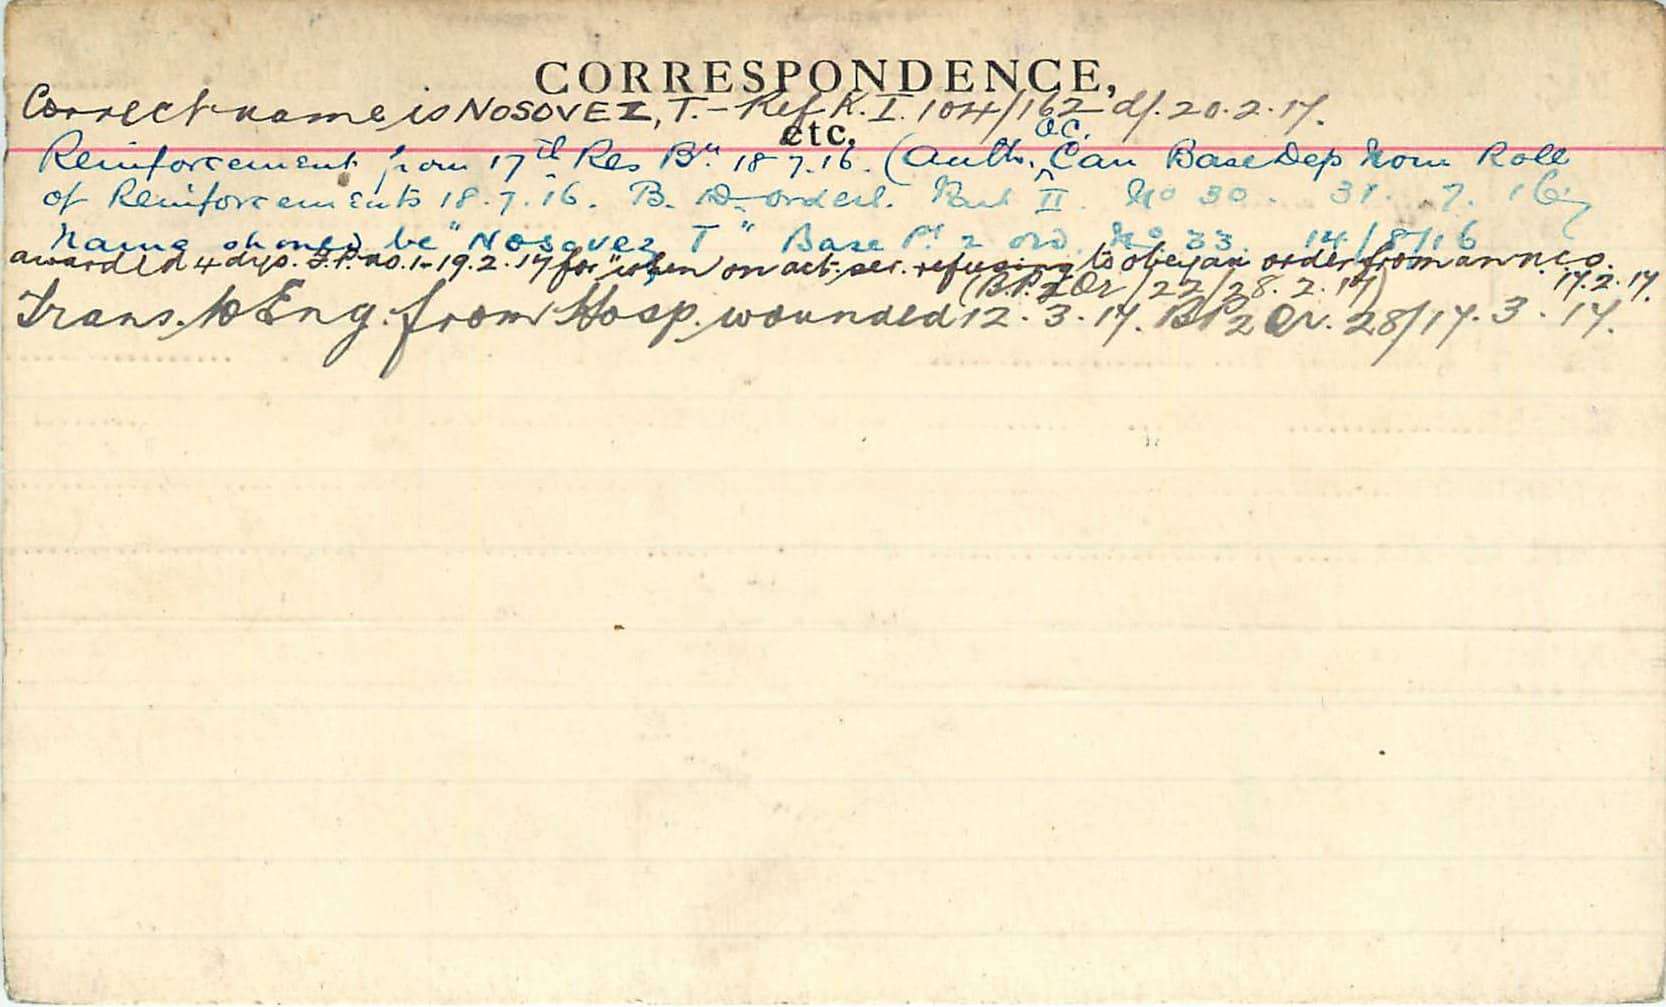 CORRESPONDENCE,
Correct name is NOSOVEZ, T. - Ref K.I. 104/162 d/. 20.2.17.
etc.
O.C.
Reinforcement from 17th Res Bn 18 7.16. (Auth. Can Base Dep Nom Roll
of Reinforcements 18.7.16. B. D. orders. Part II. No 30. 31. 7. 16)
Name should be "Nosovez T" Base Pt 2 ord. No 33. 14/8/16
awarded 4 dys. F.P. no. 1 - 19.2.17 for "when on act. ser. refusing to obey an order from an n.c.o.
(B.P. 2 Or/22/28.2.17) 17.2.17.
Trans. to Eng. from Hosp. wounded 12.3.17. BP 2 Or. 28/17.3.17.